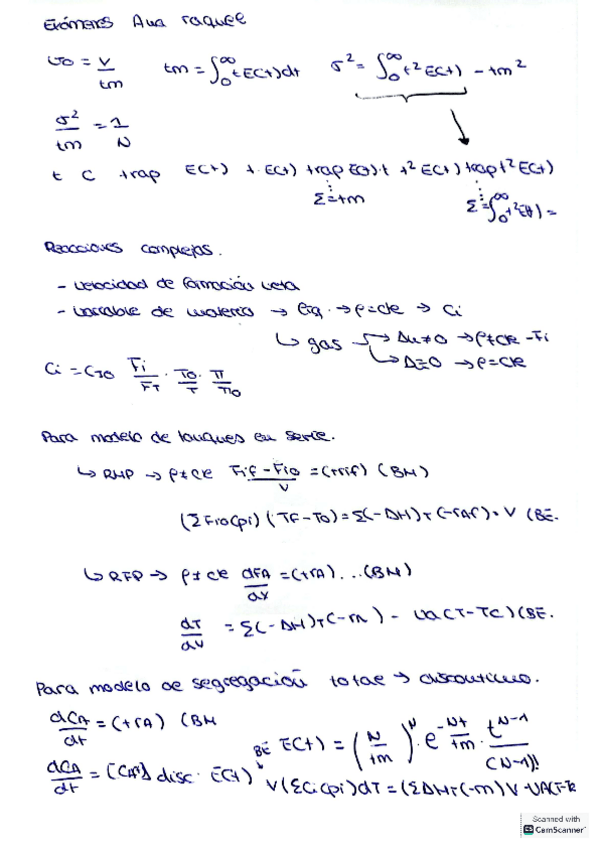 Exámenes Ana raquel
υ0 = V/tm   tm = ∫₀^∞ t E(t) dt   σ² = ∫₀^∞ t² E(t) - tm²
σ²/tm = 1/N
t C trap E(t) t·E(t) trap E(t)·t t²E(t) trap t²E(t)
Σ = tm   Σ = ∫₀^∞ t² E(t) =
Reacciones complejas.
- velocidad de formación neta
- variable de materia → líq. → ρ = cte → Ci
↳ gas → Δn ≠ 0 → ρ ≠ cte - Fi
→ Δ = 0 → ρ = cte
Ci = CT0 Fi/FT · T0/T · π/π0
Para modelo de tanques en serie.
↳ RMP → ρ ≠ cte (Fif - Fi0)/V = (+rif) (BM)
(ΣFi0Cpi)(TF - T0) = Σ(-ΔH)T (-rAf) · V (BE.
↳ RFP → ρ ≠ cte dFA/dV = (+rA)...(BM)
dT/dV = Σ(-ΔH)T (-rA) - Ua(T - Tc) (BE.
Para modelo de segregación total → discontinuo.
dCA/dt = (+rA) (BM
BE E(t) = (N/tm)^N · e^(-Nt/tm) · t^(N-1)/(N-1)!
dCA/dt = [CA] disc · E(t)   V(ΣCiCpi)dT = (ΣΔHT(-rr)V - UA(T-Tc
Scanned with
CS CamScanner